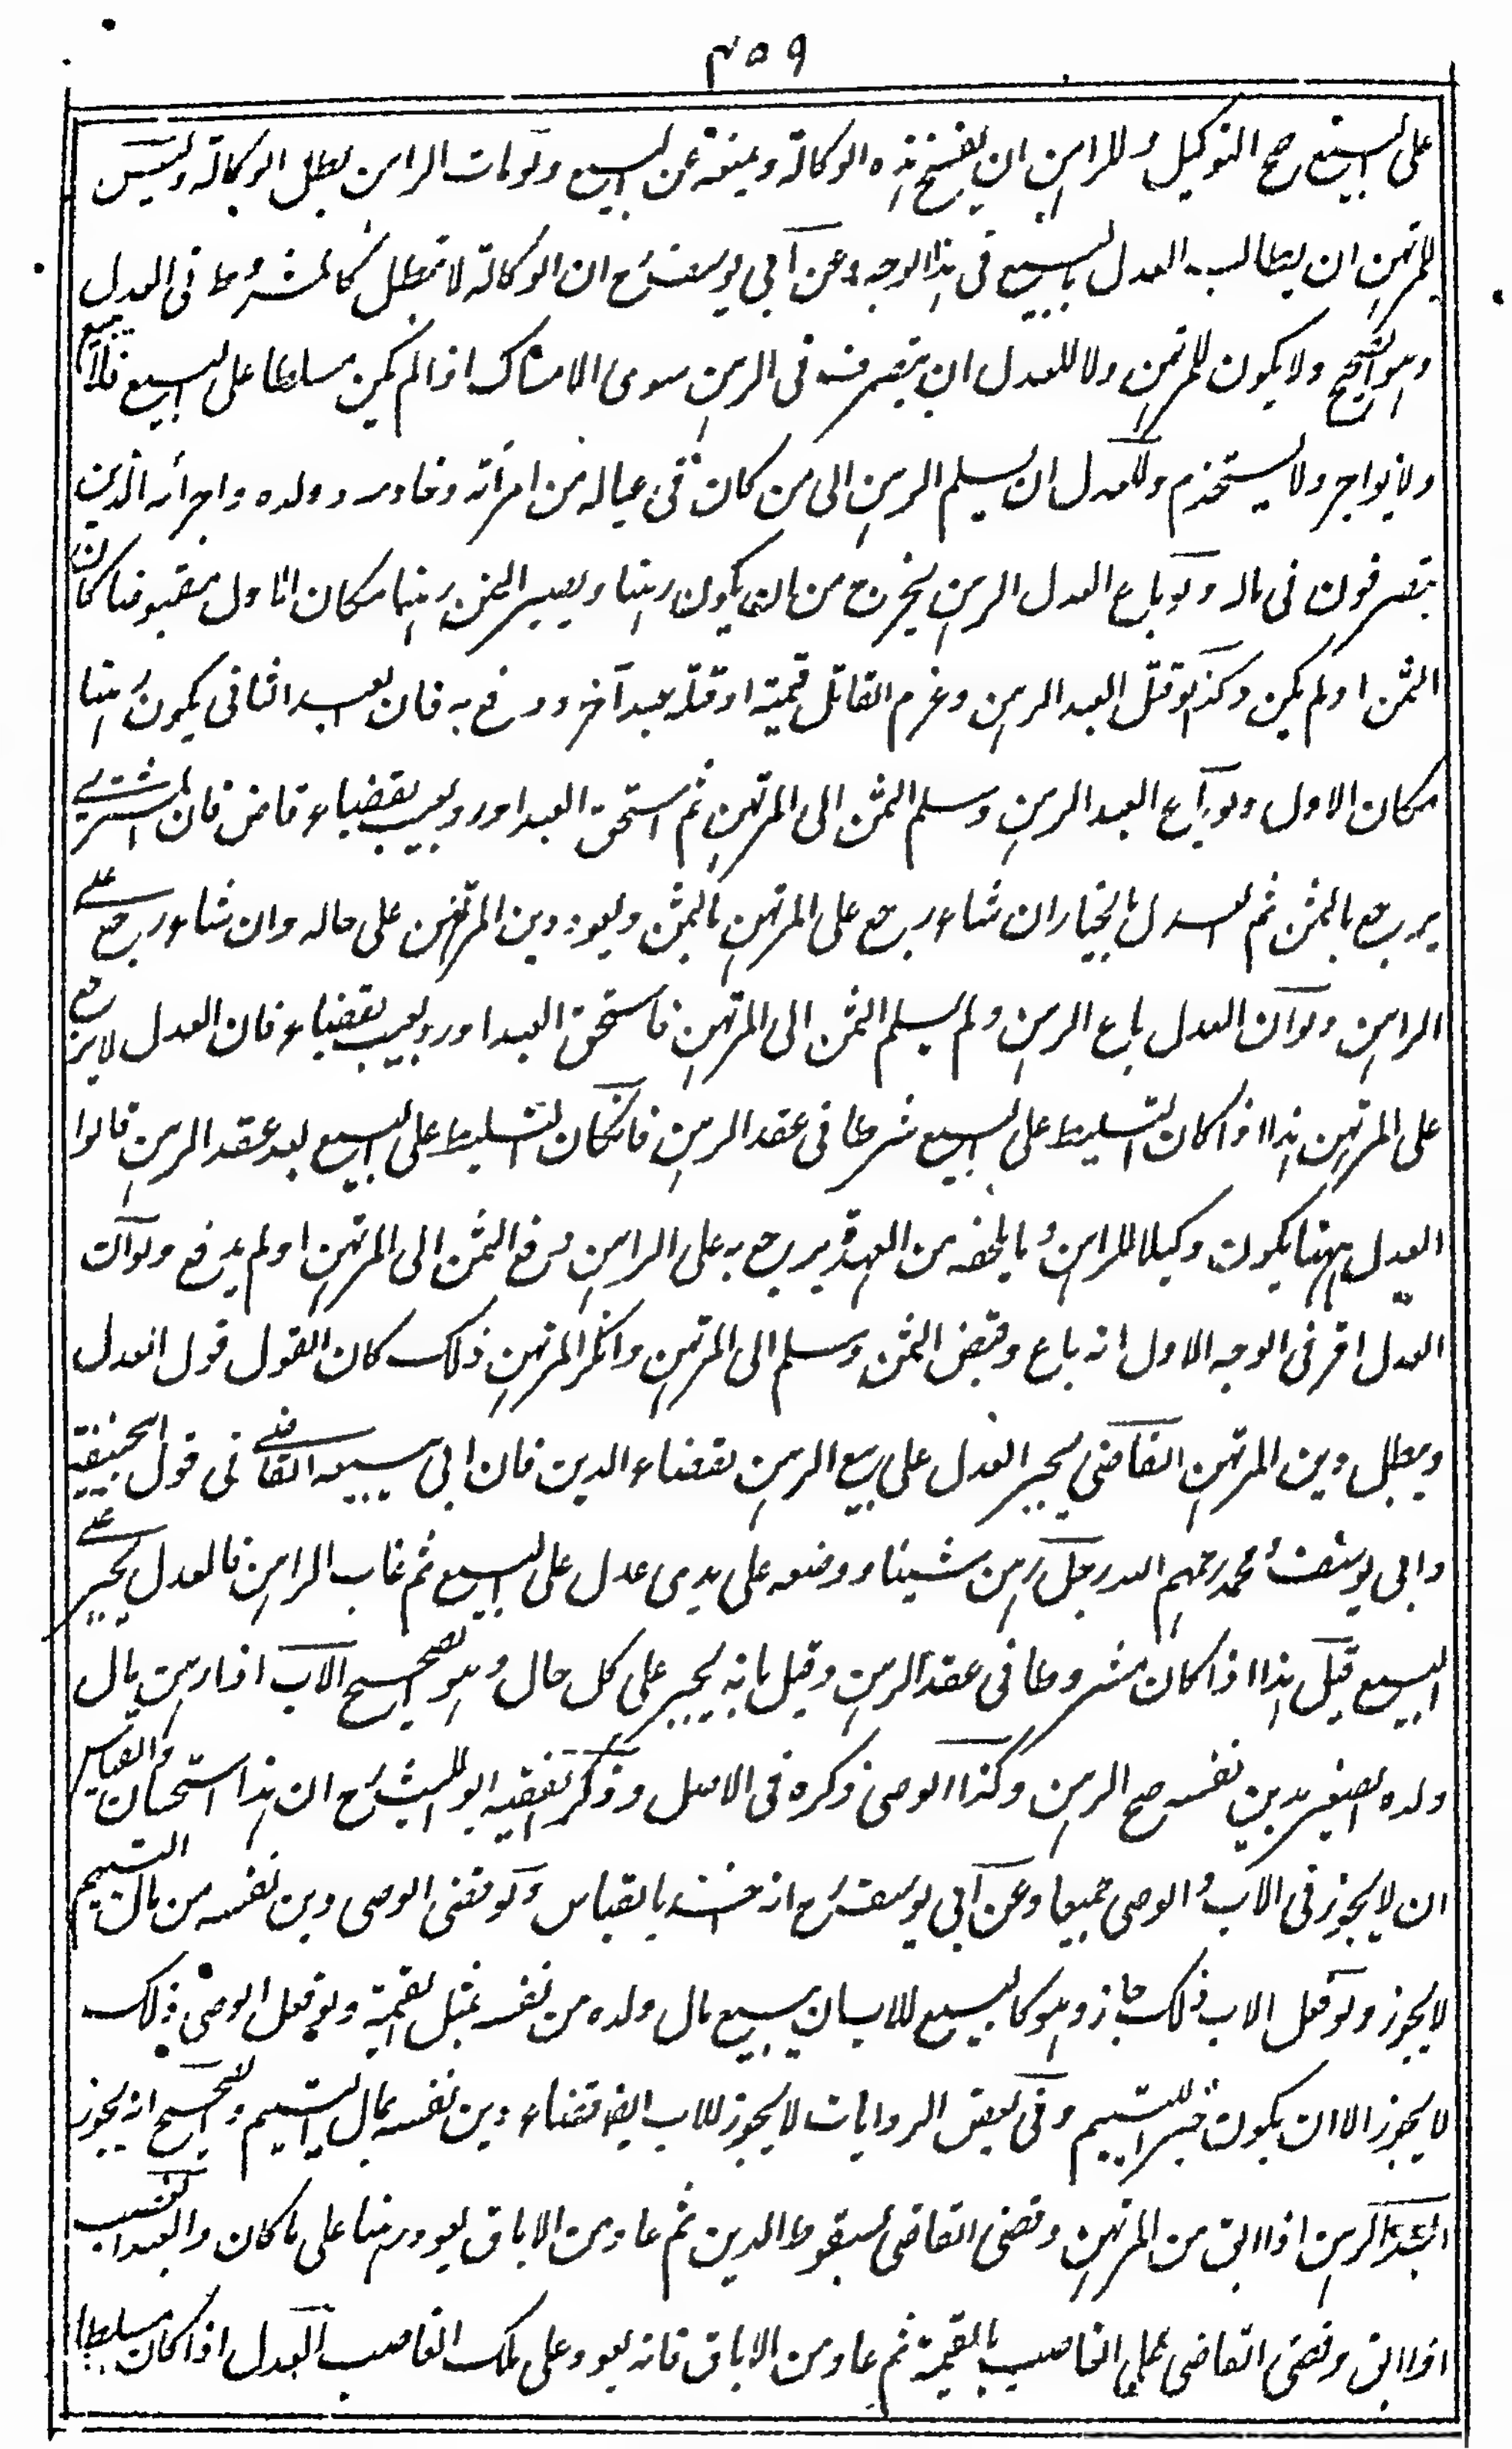 ٤٥٩
على البيع صح التوكيل وللراهن ان يفسخ هذه الوكالة ويمنعه عن البيع ولومات الراهن بطل الوكالة وليس
للمرتهن ان يطالب العدل بالبيع فى هذا الوجه وعن ابي يوسف رح ان الوكالة لا تبطل كالمشروط فى العدل
وهو الصحيح ولا يكون للمرتهن ولا للعدل ان يتصرف فى الرهن سوى الامساك اذا لم يكن مسلطا على البيع فلا يبيع
ولا يواجر ولا يستخدم وللعدل ان يسلم الرهن الى من كان فى عياله من امرأته وخادمه وولده واجرائه الذين
يتصرفون فى ماله ولو باع العدل الرهن يخرج من ان يكون رهنا ويصير الثمن رهنا مكان الاول مقبوضا كان
الثمن او لم يكن وكذا لو قتل العبد الرهن وغرم القاتل قيمته او قتله عبد آخر ودفع به فان العبد الثانى يكون رهنا
مكان الاول ولو باع العبد الرهن وسلم الثمن الى المرتهن ثم استحق العبد او رد بعيب بقضاء قاض فان المشترى
يرجع بالثمن ثم العدل بالخيار ان شاء رجع على المرتهن بالثمن ويعود دين المرتهن على حاله وان شاء رجع على
الراهن ولو ان العدل باع الرهن ولم يسلم الثمن الى المرتهن فاستحق العبد او رد بعيب بقضاء فان العدل لا يرجع
على المرتهن هذا اذا كان التسليط على البيع شرطا فى عقد الرهن فان كان التسليط على البيع بعد عقد الرهن قالوا
العدل ههنا يكون وكيلا للراهن وما يلحقه من العهدة يرجع به على الراهن دفع الثمن الى المرتهن او لم يدفع ولو ان
العدل اقر فى الوجه الاول انه باع وقبض الثمن وسلم الى المرتهن وانكر المرتهن ذلك كان القول قول العدل
ويبطل دين المرتهن القاضى يجبر العدل على بيع الرهن بقضاء الدين فان ابى يبيعه القاضى فى قول ابيحنيفة
وابى يوسف ومحمد رحمهم الله رجل رهن شيئا ووضعه على يدى عدل على البيع ثم غاب الراهن فالعدل يجبر على
البيع قيل هذا اذا كان مشروطا فى عقد الرهن وقيل بانه يجبر على كل حال وهو الصحيح الاب اذا رهن مال
ولده الصغير بدين نفسه صح الرهن وكذا الوصى ذكره فى الاصل وذكر الفقيه ابو الليث رح ان هذا استحسان والقياس
ان لا يجوز فى الاب والوصى جميعا وعن ابي يوسف رح انه اخذ بالقياس ولو قضى الوصى دين نفسه من مال اليتيم
لا يجوز ولو فعل الاب ذلك جاز وهو كالبيع للاب ان يبيع مال ولده من نفسه بمثل القيمة ولو فعل الوصى ذلك
لا يجوز الا ان يكون خيرا لليتيم وفى بعض الروايات لا يجوز للاب ايضا قضاء دين نفسه بمال اليتيم والصحيح انه يجوز
العبد الرهن اذا ابق من المرتهن وقضى القاضى بسقوط الدين ثم عاد من الاباق يعود رهنا على ما كان والعبد الغصب
اذا ابق وقضى القاضى على الغاصب بالقيمة ثم عاد من الاباق فانه يعود على ملك الغاصب العدل اذا كان مسلطا